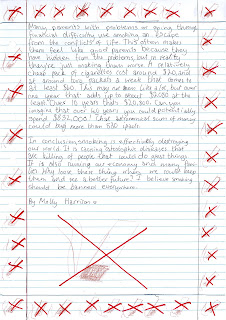 Many parents with problems or going through
financial difficulty use smoking as an escape
from the conflicts of life. This often makes
them feel like good parents because they
are hidden from the problems, but in reality
they're just making them worse. A relatively
cheap pack of cigarettes cost around $20, and
if around two packets a week that comes to
at least $40. This may not seem like a lot, but over
one year that adds up to about $2080 at the
least. Over 10 years that's $20,800. Can you
imagine that over 40 years you could potentially
spend $832,000. That astronomical sum of money
could buy more than 520 ipads.
In conclusion, smoking is effectively destroying
our world. It is causing catastrophic diseases that
are killing of people that could do great things.
It is also ruining our economy and many
families lose their money. We could keep
them and see a better future. I believe smoking
should be banned everywhere.
By Molly Harrison